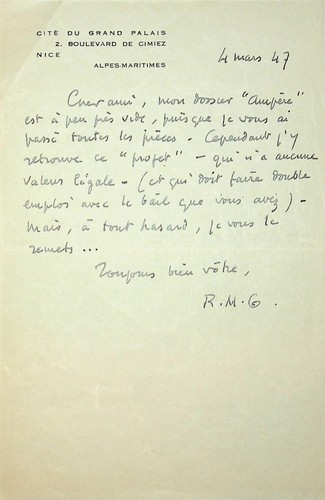 CITÉ DU GRAND PALAIS
2. BOULEVARD DE CIMIEZ
NICE
ALPES-MARITIMES
4 mars 47
Cher ami, mon dossier "Ampère"
est à peu près vide, puisque je vous ai
passé toutes les pièces - Cependant j'y
retrouve ce "projet" - qui n'a aucune
valeur légale - (et qui doit faire double
emploi avec le bail que vous avez) -
Mais, à tout hasard, je vous le
remets ...
Toujours bien vôtre,
R.M.G.